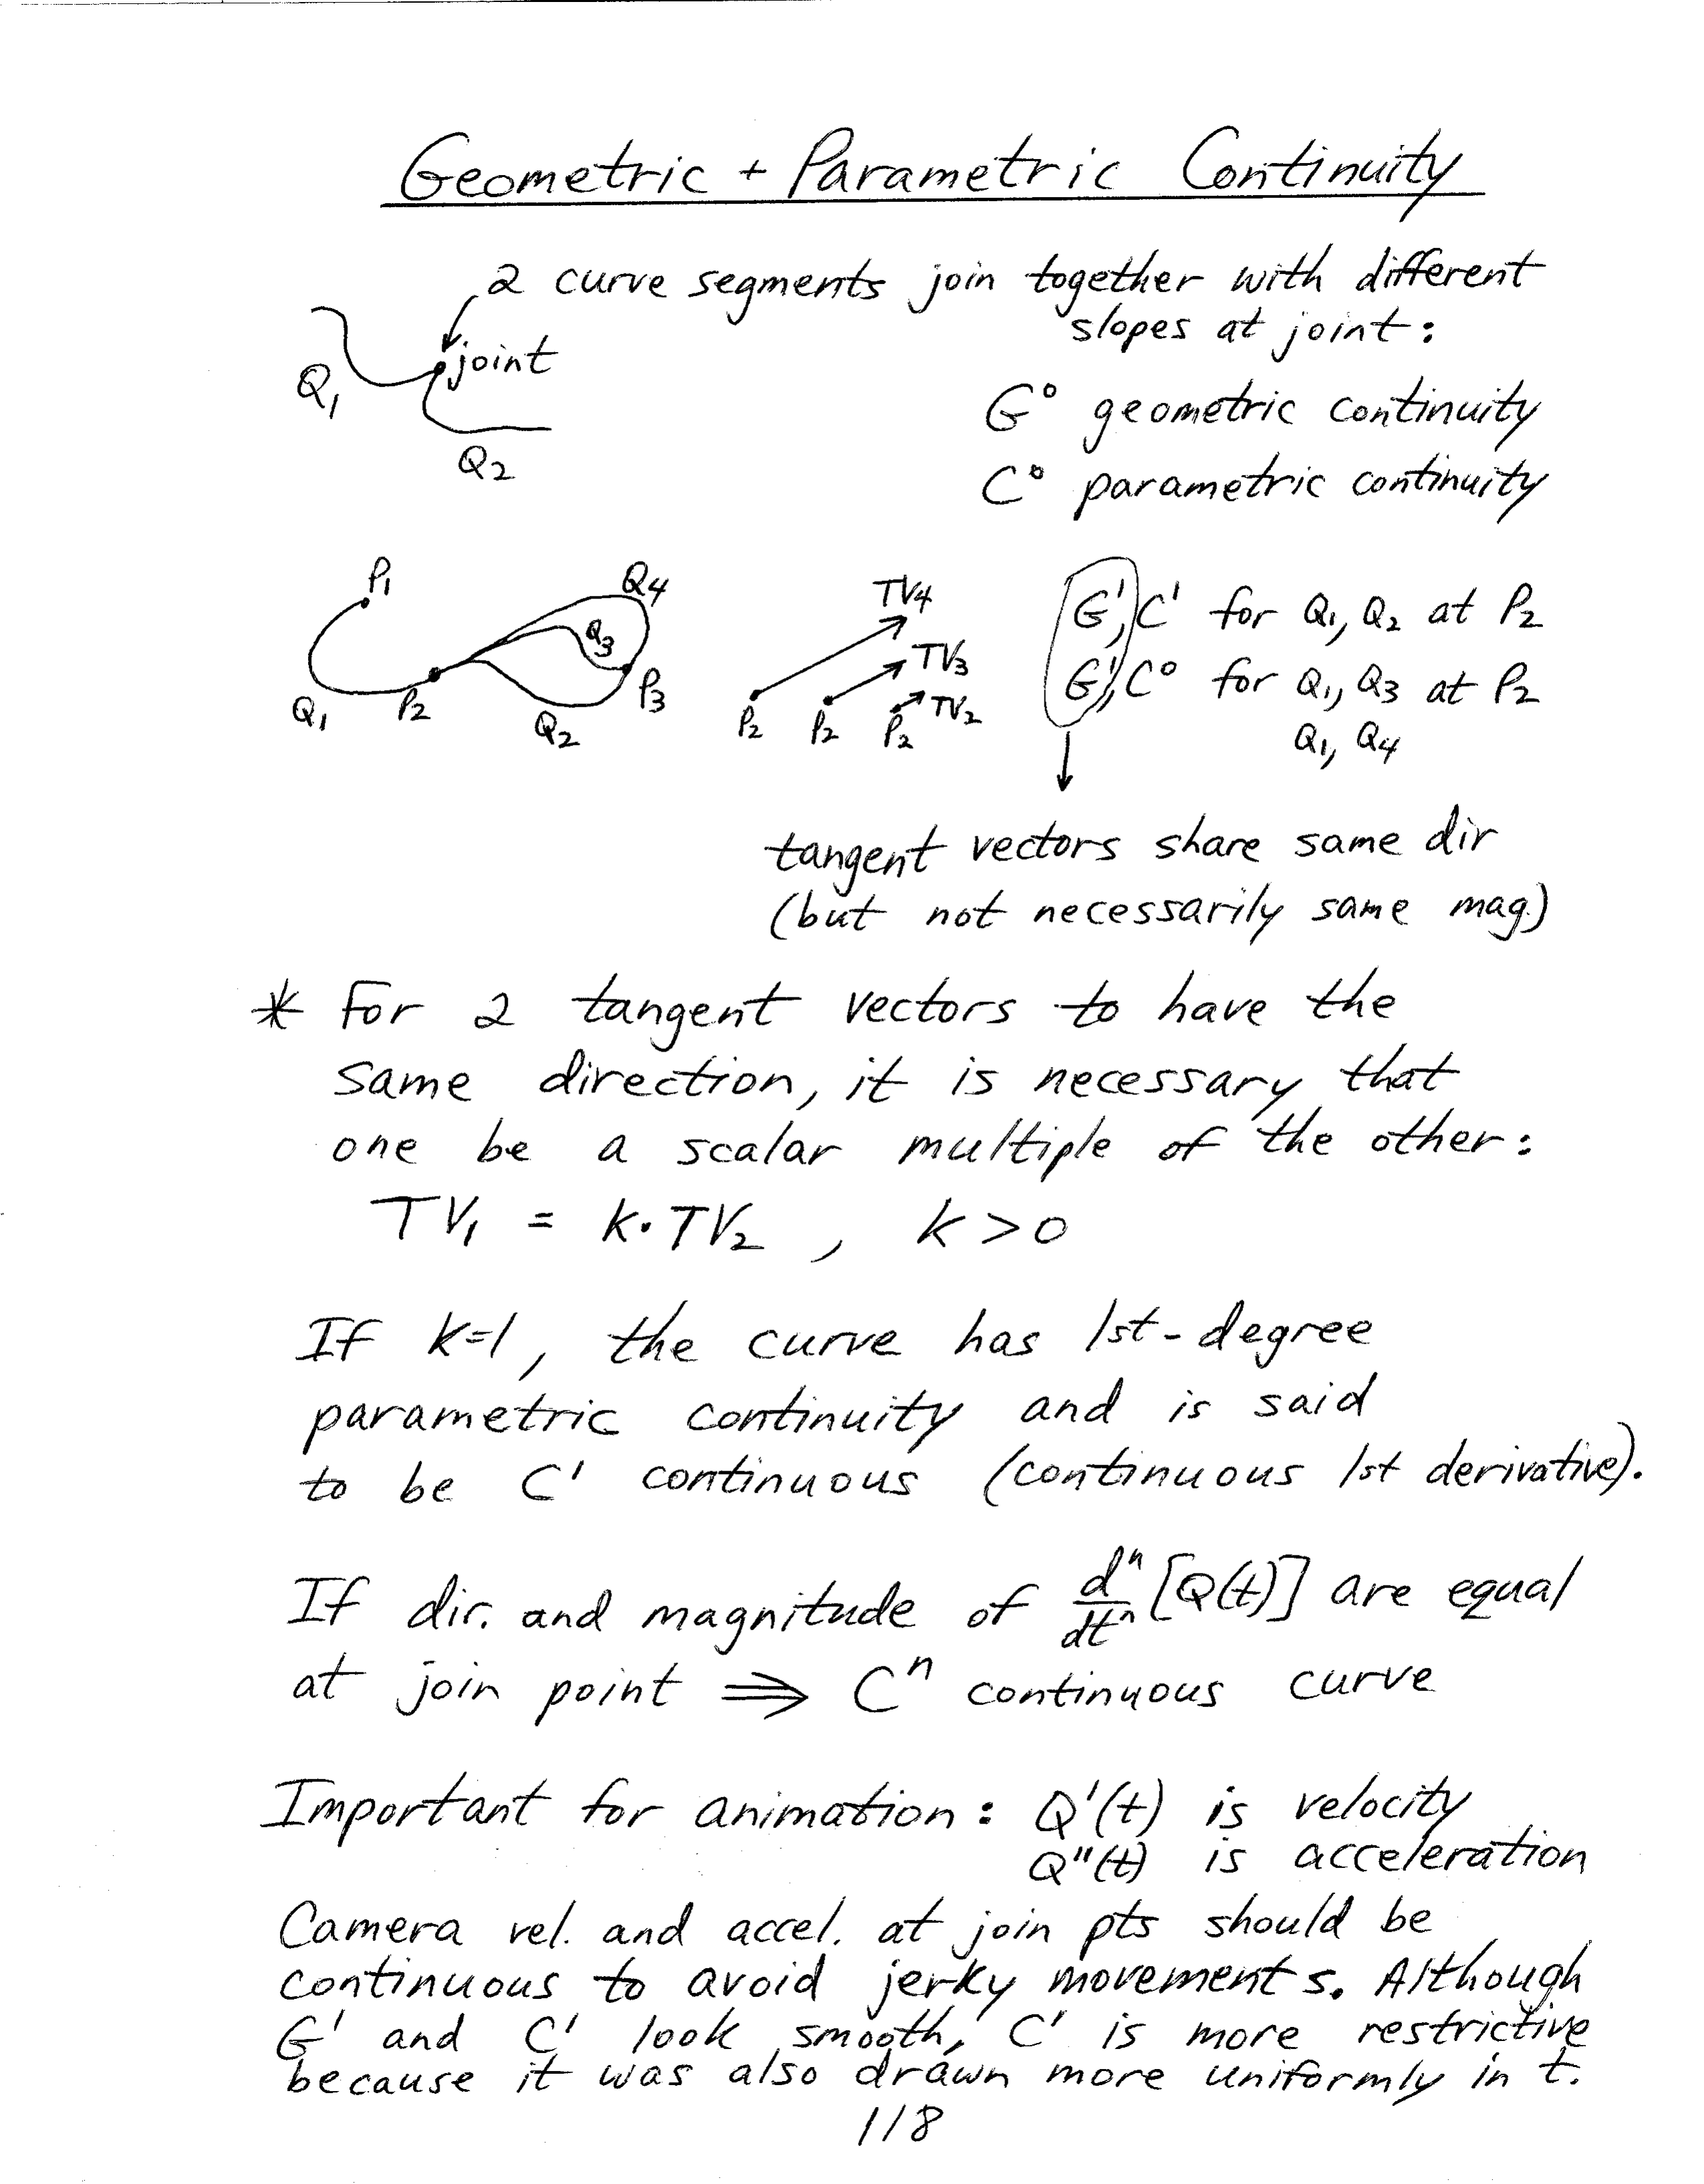 Geometric + Parametric Continuity
2 curve segments join together with different
slopes at joint:
joint
Q₁
Q₂
G⁰ geometric continuity
C⁰ parametric continuity
P₁
Q₄
Q₃
P₃
Q₁
P₂
Q₂
TV₄
TV₃
TV₂
P₂
P₂
P₂
G¹, C¹ for Q₁, Q₂ at P₂
G¹, C⁰ for Q₁, Q₃ at P₂
Q₁, Q₄
tangent vectors share same dir
(but not necessarily same mag.)
* For 2 tangent vectors to have the
same direction, it is necessary that
one be a scalar multiple of the other:
TV₁ = k·TV₂ , k > 0
If k=1, the curve has 1st-degree
parametric continuity and is said
to be C¹ continuous (continuous 1st derivative).
If dir. and magnitude of dⁿ/dtⁿ [Q(t)] are equal
at join point ⇒ Cⁿ continuous curve
Important for animation: Q'(t) is velocity
Q"(t) is acceleration
Camera vel. and accel. at join pts should be
continuous to avoid jerky movements. Although
G¹ and C¹ look smooth, C¹ is more restrictive
because it was also drawn more uniformly in t.
118